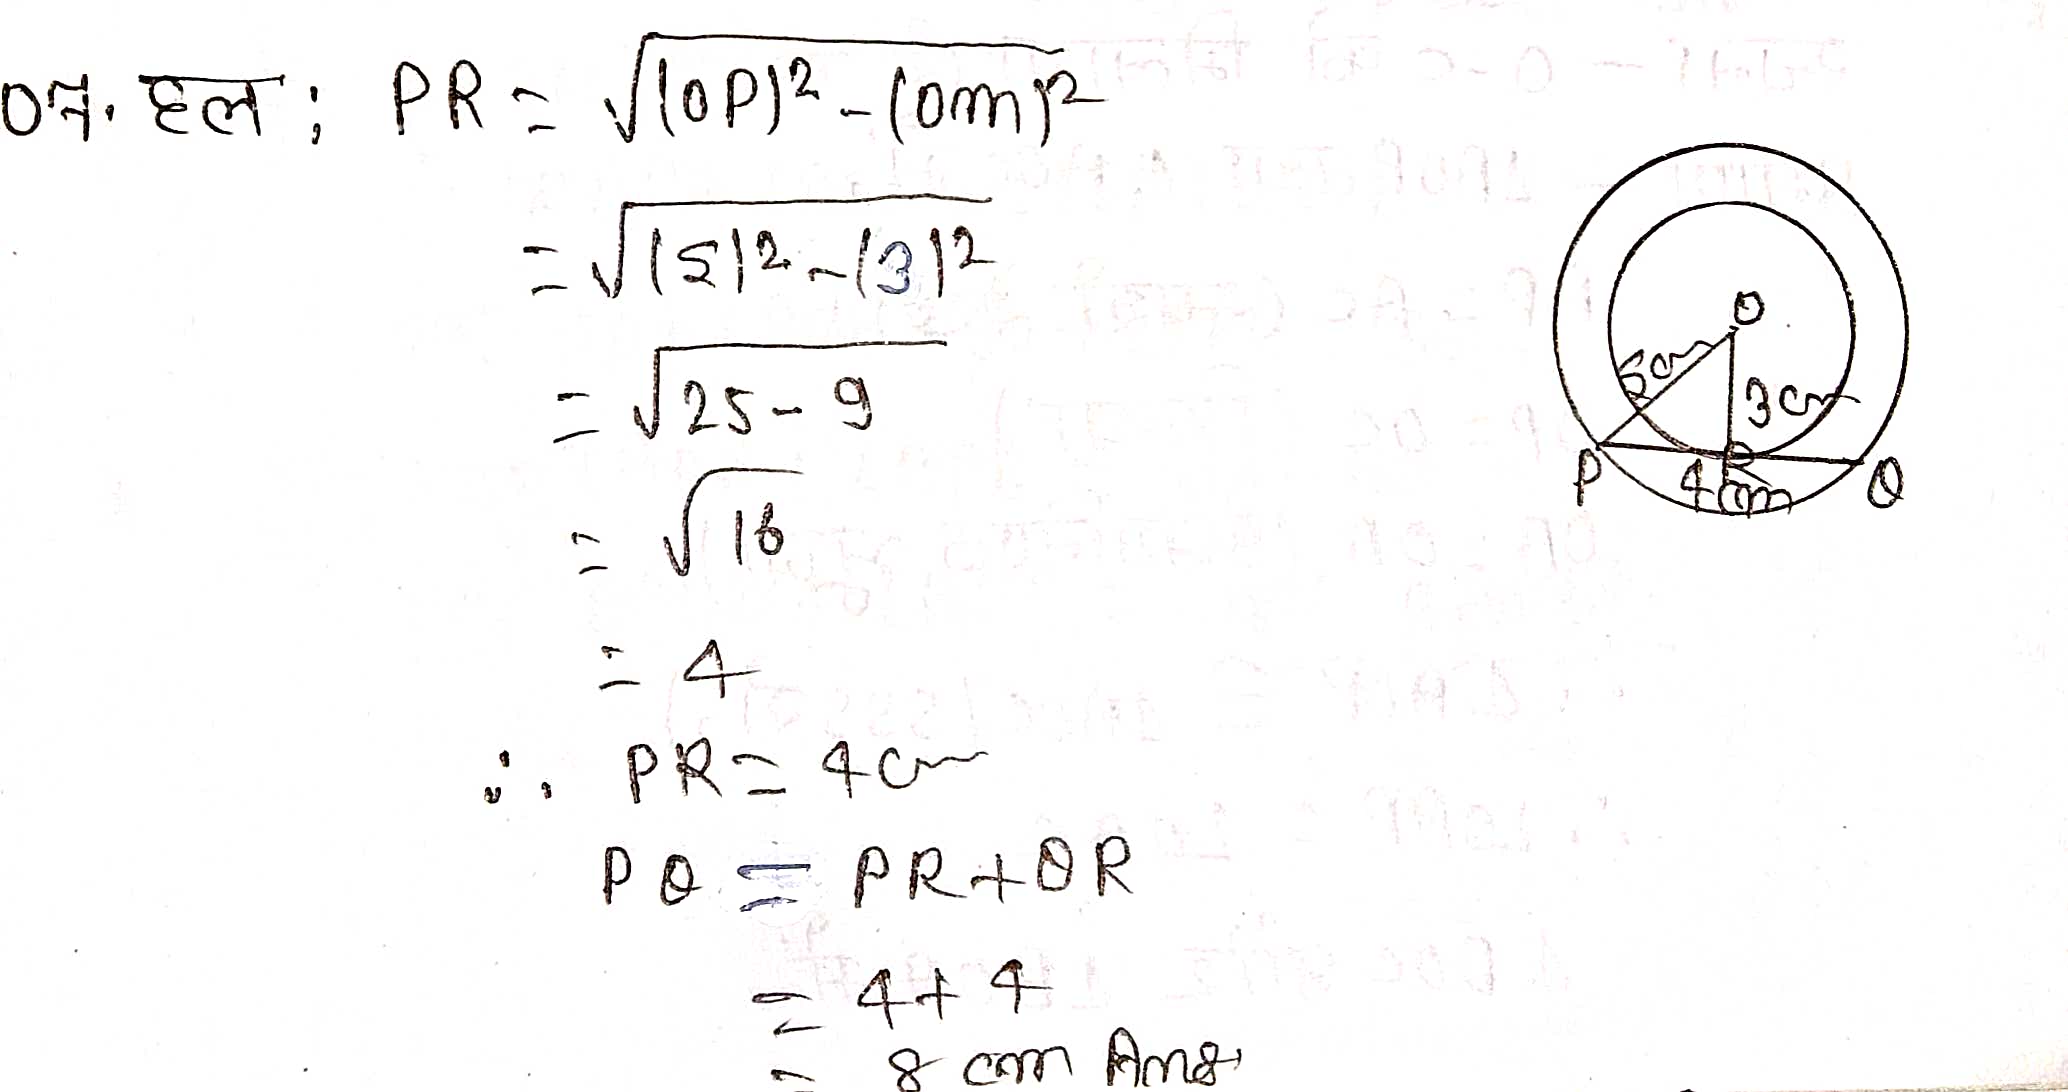 07. हल ; PR = √(OP)² - (Om)²
= √(5)² - (3)²
= √25 - 9
= √16
= 4
∴ PR = 4cm
PQ = PR + QR
= 4 + 4
= 8 cm Ans
O
5cm
3cm
P
R
Q
4cm